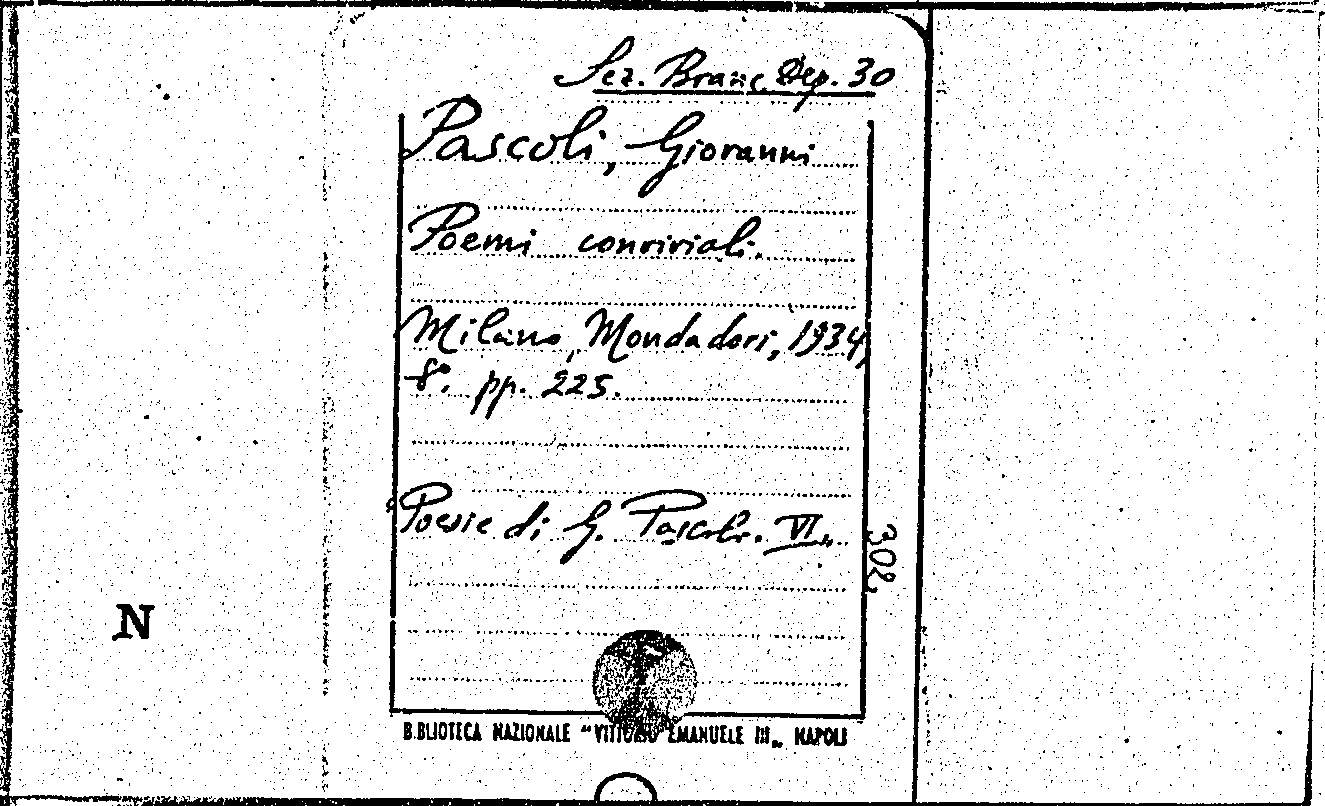 Sez. Branc. Dep. 30
Pascoli, Giovanni
Poemi conviviali.
Milano, Mondadori, 1934,
8°. pp. 225.
"Poesie di G. Pascoli. VI„
302
N
B.BLIOTECA NAZIONALE "VITTORIO EMANUELE III„ NAPOLI